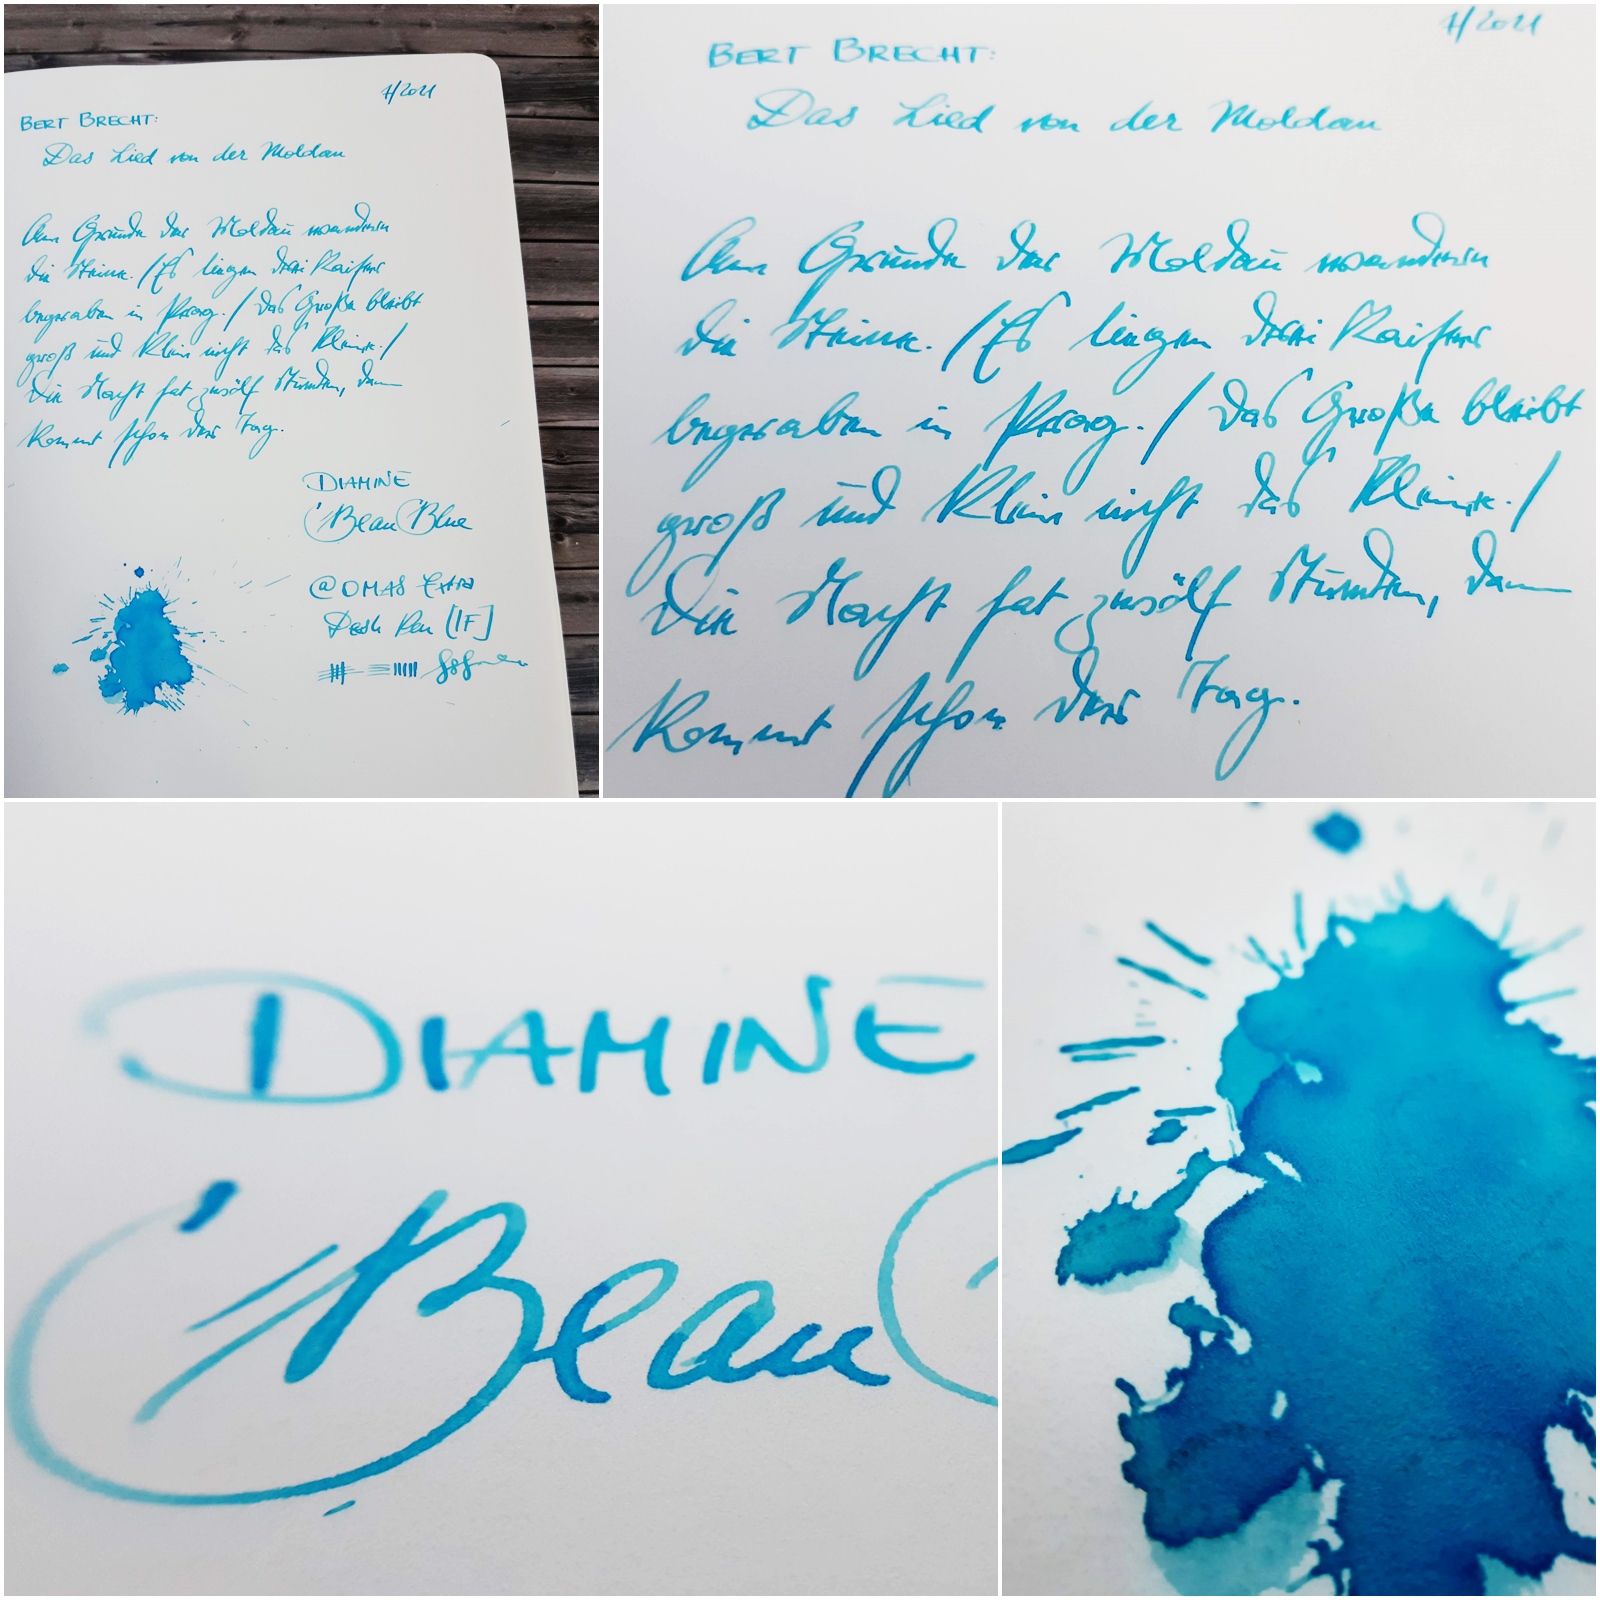 BERT BRECHT:
Das Lied von der Moldau
Am Grunde der Moldau wandern
die Steine. / Es liegen drei Kaiser
begraben in Prag. / Das Große bleibt
groß und klein nicht das Kleine. /
Die Nacht hat zwölf Stunden, dann
kommt schon der Tag.
DIAMINE
Beau Blue
@OMAS
Desk Pen [IF]
BERT BRECHT:
Das Lied von der Moldau
Am Grunde der Moldau wandern
die Steine. / Es liegen drei Kaiser
begraben in Prag. / Das Große bleibt
groß und klein nicht das Kleine. /
Die Nacht hat zwölf Stunden, dann
kommt schon der Tag.
DIAMINE
Beau